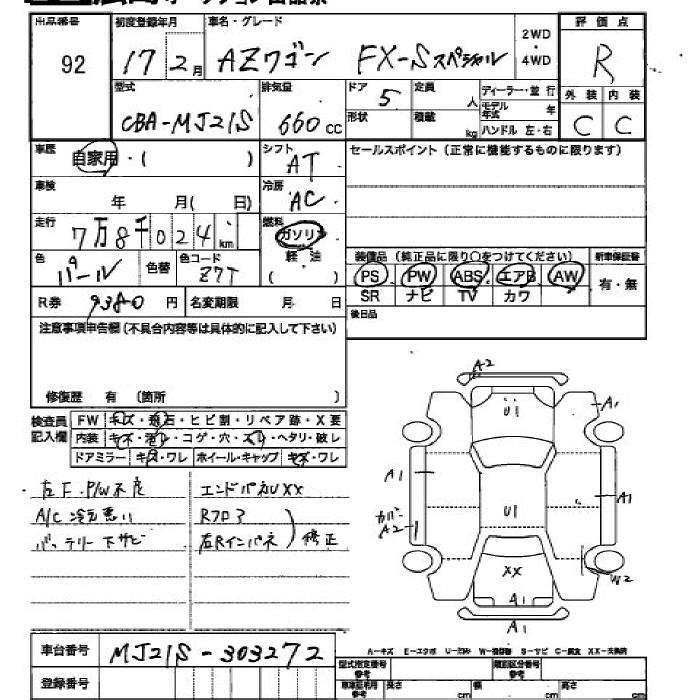 出品番号 初度登録年月 車名・グレード 評価点
92 17 2月 AZワゴン FX-Sスペシャル 2WD・4WD R
型式 排気量 ドア 5 定員 人 ディーラー・並行 外装 内装
CBA-MJ21S 660cc 形状 積載 kg モデル年式 ハンドル 左・右 C C
車歴 自家用・( ) シフト AT セールスポイント(正常に機能するものに限ります)
車検 年 月( 日) 冷房 AC
走行 7万8千024km 燃料 ガソリン
軽・油 ( )
色 パール 色替 色コード Z7T
装備品(純正品に限り○をつけてください) 新車保証書
PS PW ABS エアB AW 有・無
SR ナビ TV カワ
R券 9380円 名変期限 月 日
後日品
注意事項申告欄(不具合内容等は具体的に記入して下さい)
修復歴 有 (箇所 )
検査員記入欄 FW キズ・飛石・ヒビ割・リペア跡・X要
内装 キズ・汚レ・コゲ・穴・スレ・ヘタリ・破レ
ドアミラー キズ・ワレ ホイール・キャップ キズ・ワレ
左F.P/W不良 エンドパネルUXX
A/C冷え悪い Rフロア
バッテリー下サビ 右Rインパネ 修正
A2
U1 A1
A1 A1
カバー A2 U1
XX W2
A1
A1
A-キズ E-エクボ U-凹み W-補修跡 S-サビ C-腐食 XX-交換済
車台番号 MJ21S-303272
登録番号
型式指定番号 参考 類別区分番号 参考
車車証明用 参考 長さ cm 幅 cm 高さ cm